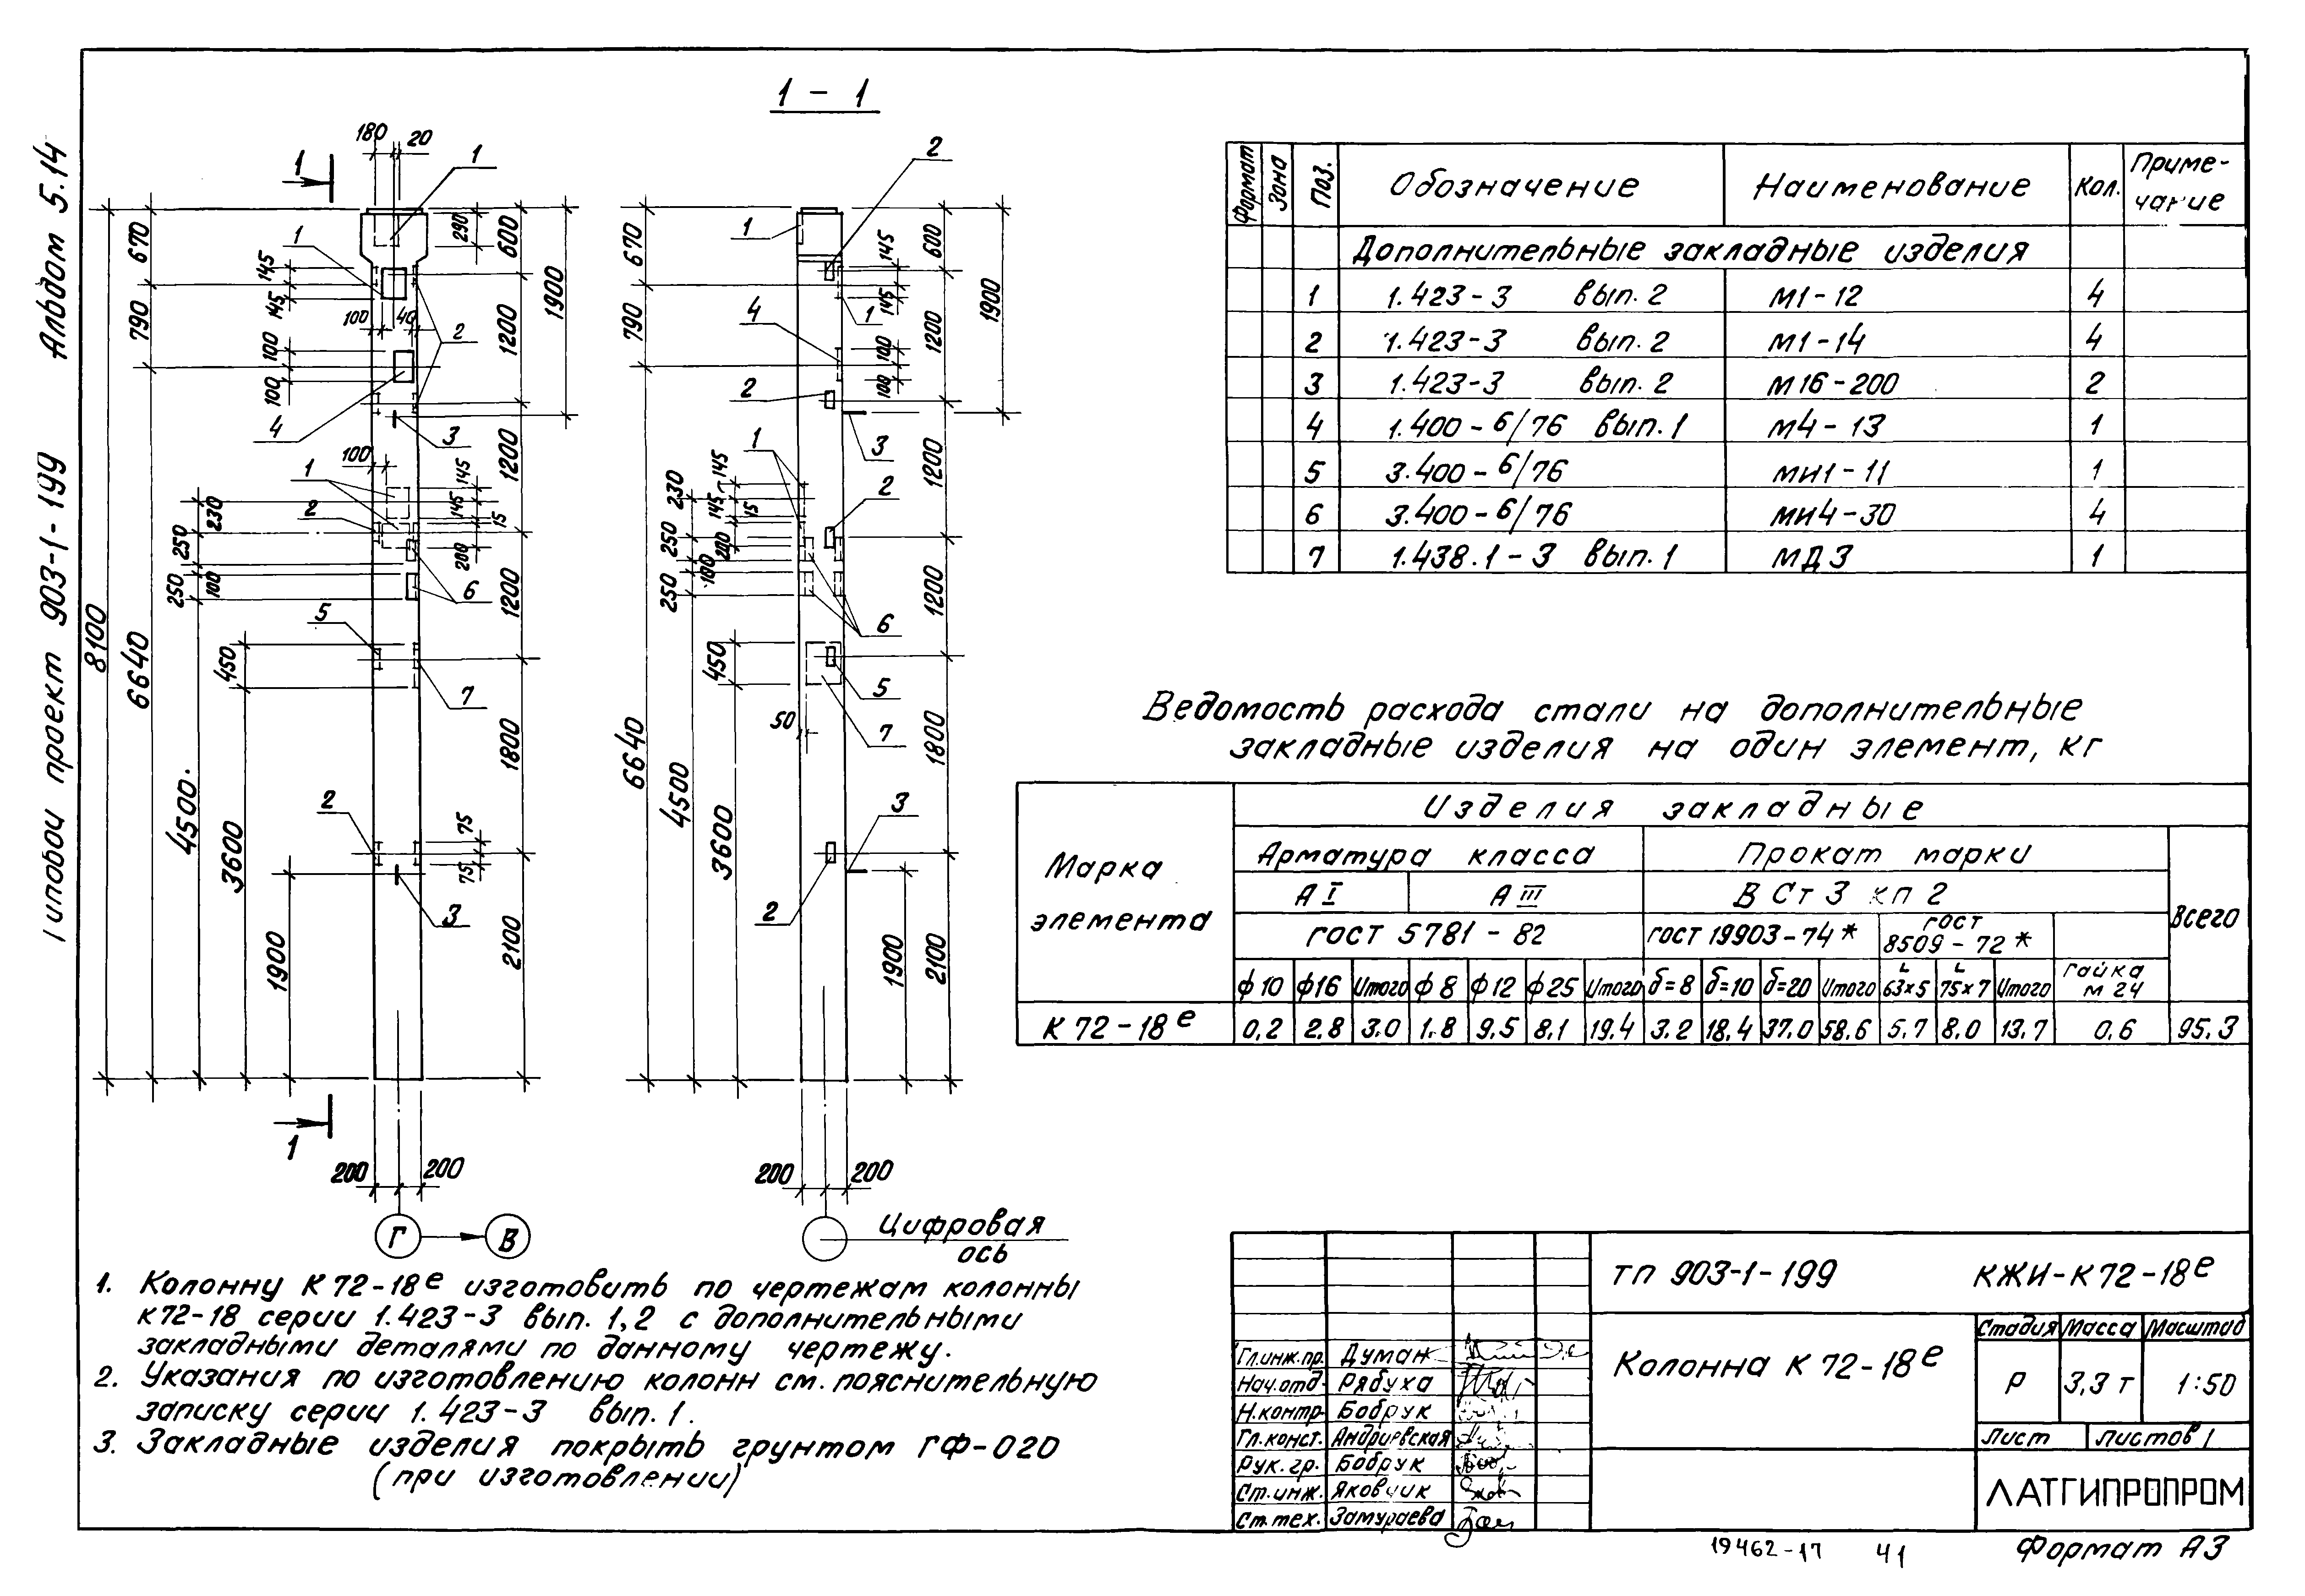 Альбом 5.14
Типовой проект 903-1-199
1 - 1
180 20
1
1
2
670
790
145
145
100
40
100
100
290
600
1200
1900
1
1
2
4
3
100
1
145
145
15
200
230
250
250
100
2
6
5
450
7
1200
1200
1800
2100
8100
6640
4500
3600
1900
2
75
75
3
1
200 200
Г
В
670
790
1
145
145
600
1200
1900
1
4
100
100
2
3
1
145
145
15
230
250
200
100
250
2
6
450
5
7
50
1200
1200
1800
2100
6640
4500
3600
3
2
1900
200 200
Цифровая
ось
Формат Зона Поз. Обозначение Наименование Кол. Приме-
чание
Дополнительные закладные изделия
1 1.423-3 вып. 2 М1-12 4
2 1.423-3 вып. 2 М1-14 4
3 1.423-3 вып. 2 М16-200 2
4 1.400-6/76 вып. 1 М4-13 1
5 3.400-6/76 МИ1-11 1
6 3.400-6/76 МИ4-30 4
7 1.438.1-3 вып. 1 МД3 1
Ведомость расхода стали на дополнительные
закладные изделия на один элемент, кг
Марка
элемента
Изделия закладные
Арматура класса Прокат марки
А I А III В Ст 3 кп 2
Всего
ГОСТ 5781-82 ГОСТ 19903-74* ГОСТ
8509-72*
ф10 ф16 Итого ф8 ф12 ф25 Итого δ=8 δ=10 δ=20 Итого L 63×5 L 75×7 Итого Гайка М 24
К 72-18е 0.2 2.8 3.0 1.8 9.5 8.1 19.4 3.2 18.4 37.0 58.6 5.7 8.0 13.7 0.6 95.3
1. Колонну К 72-18е изготовить по чертежам колонны
К72-18 серии 1.423-3 вып. 1,2 с дополнительными
закладными деталями по данному чертежу.
2. Указания по изготовлению колонн см. пояснительную
записку серии 1.423-3 вып. 1.
3. Закладные изделия покрыть грунтом ГФ-020
(при изготовлении)
ТП 903-1-199 КЖИ-К72-18е
Колонна К 72-18е
Стадия Масса Масштаб
Р 3,3 т 1:50
Лист Листов 1
ЛАТГИПРОПРОМ
Гл.инж.пр. Думан
Нач.отд. Рябуха
Н.контр. Бобрук
Гл.конст. Андриевская
Рук.гр. Бобрук
Ст.инж. Яковчик
Ст.тех. Замураева
19462-17 41
Формат А3